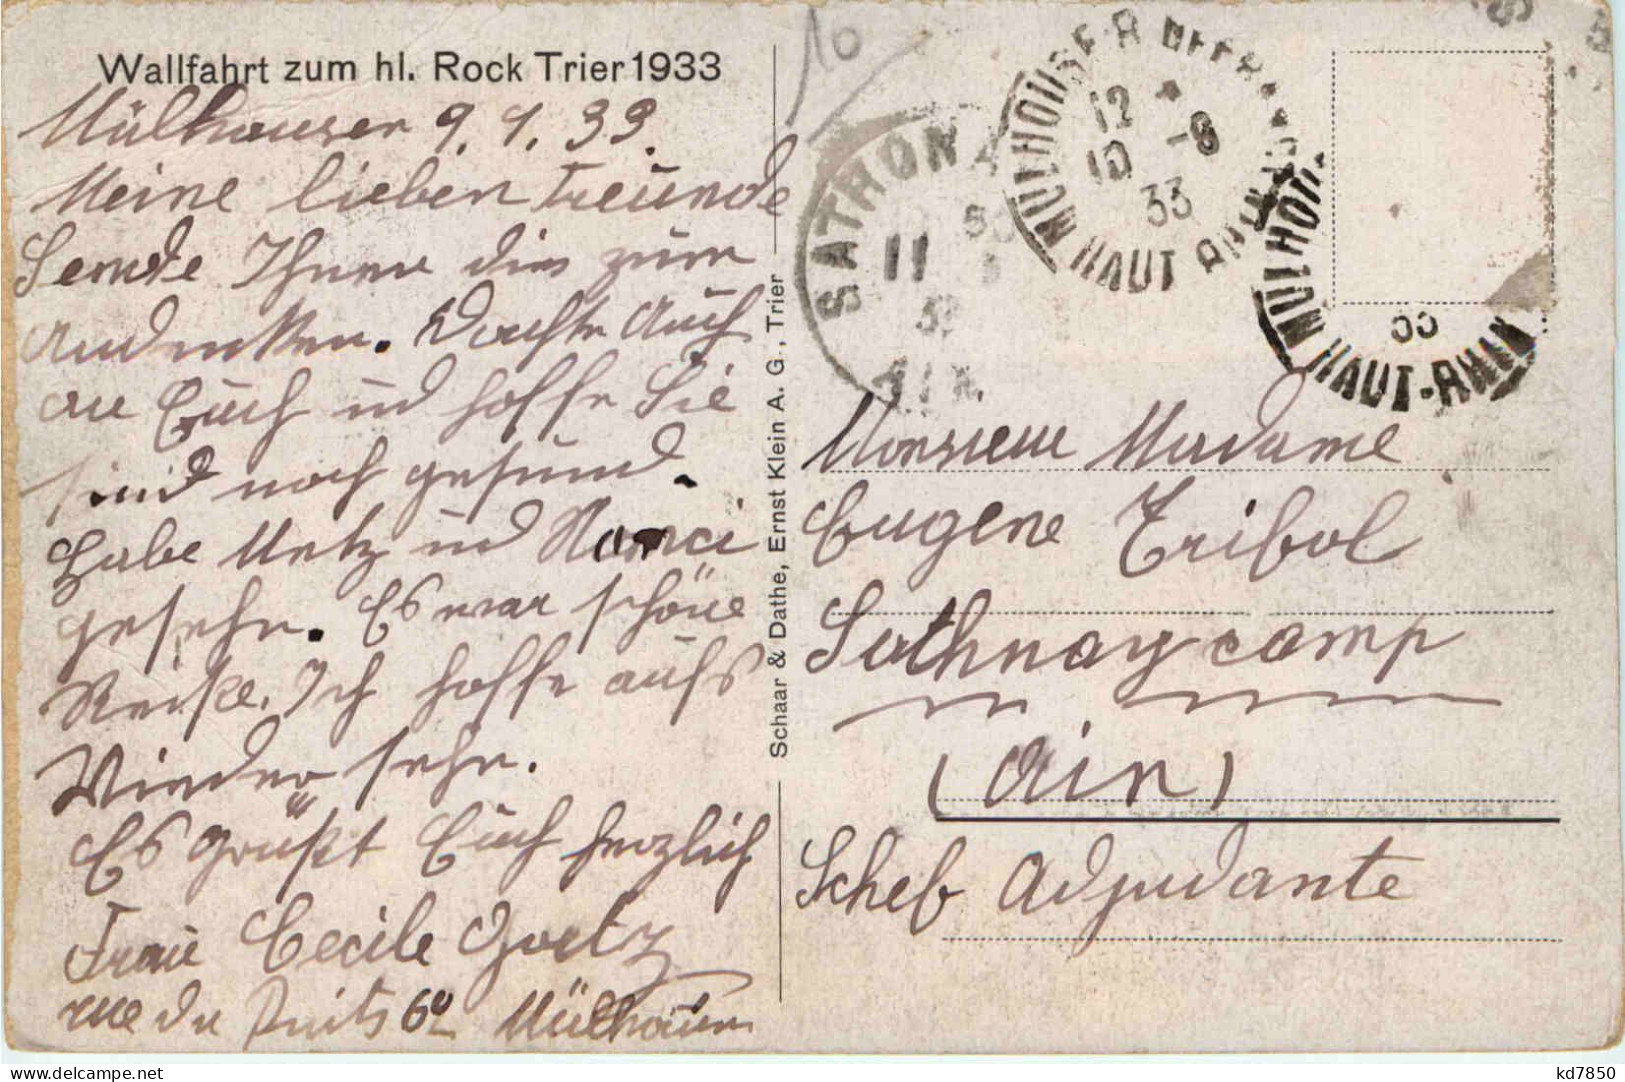 Wallfahrt zum hl. Rock Trier 1933
Mülhausen 9.9.33.
Meine lieben Freunde
Sende Ihnen dies zum
Andenken. Dachte Auch
an Euch und hoffe Sie
sind noch gesund.
Habe Metz und Nanci
gesehn. Es war schöne
Reise. Ich hoffe aufs
Wieder sehn.
Es grüßt Euch herzlich
Frau Cecile Goetz
rue du Puits 60 Mülhausen
Schaar & Dathe, Ernst Klein A. G., Trier
10
SATHONA
11
AIN
MULHOUSE-R
HAUT RHIN
12
10 -9
33
MULHOUSE
HAUT-RHIN
33
Monsieur Madame
Eugene Tribol
Sathnay camp
(Ain)
Schef Adjudante
kd7850